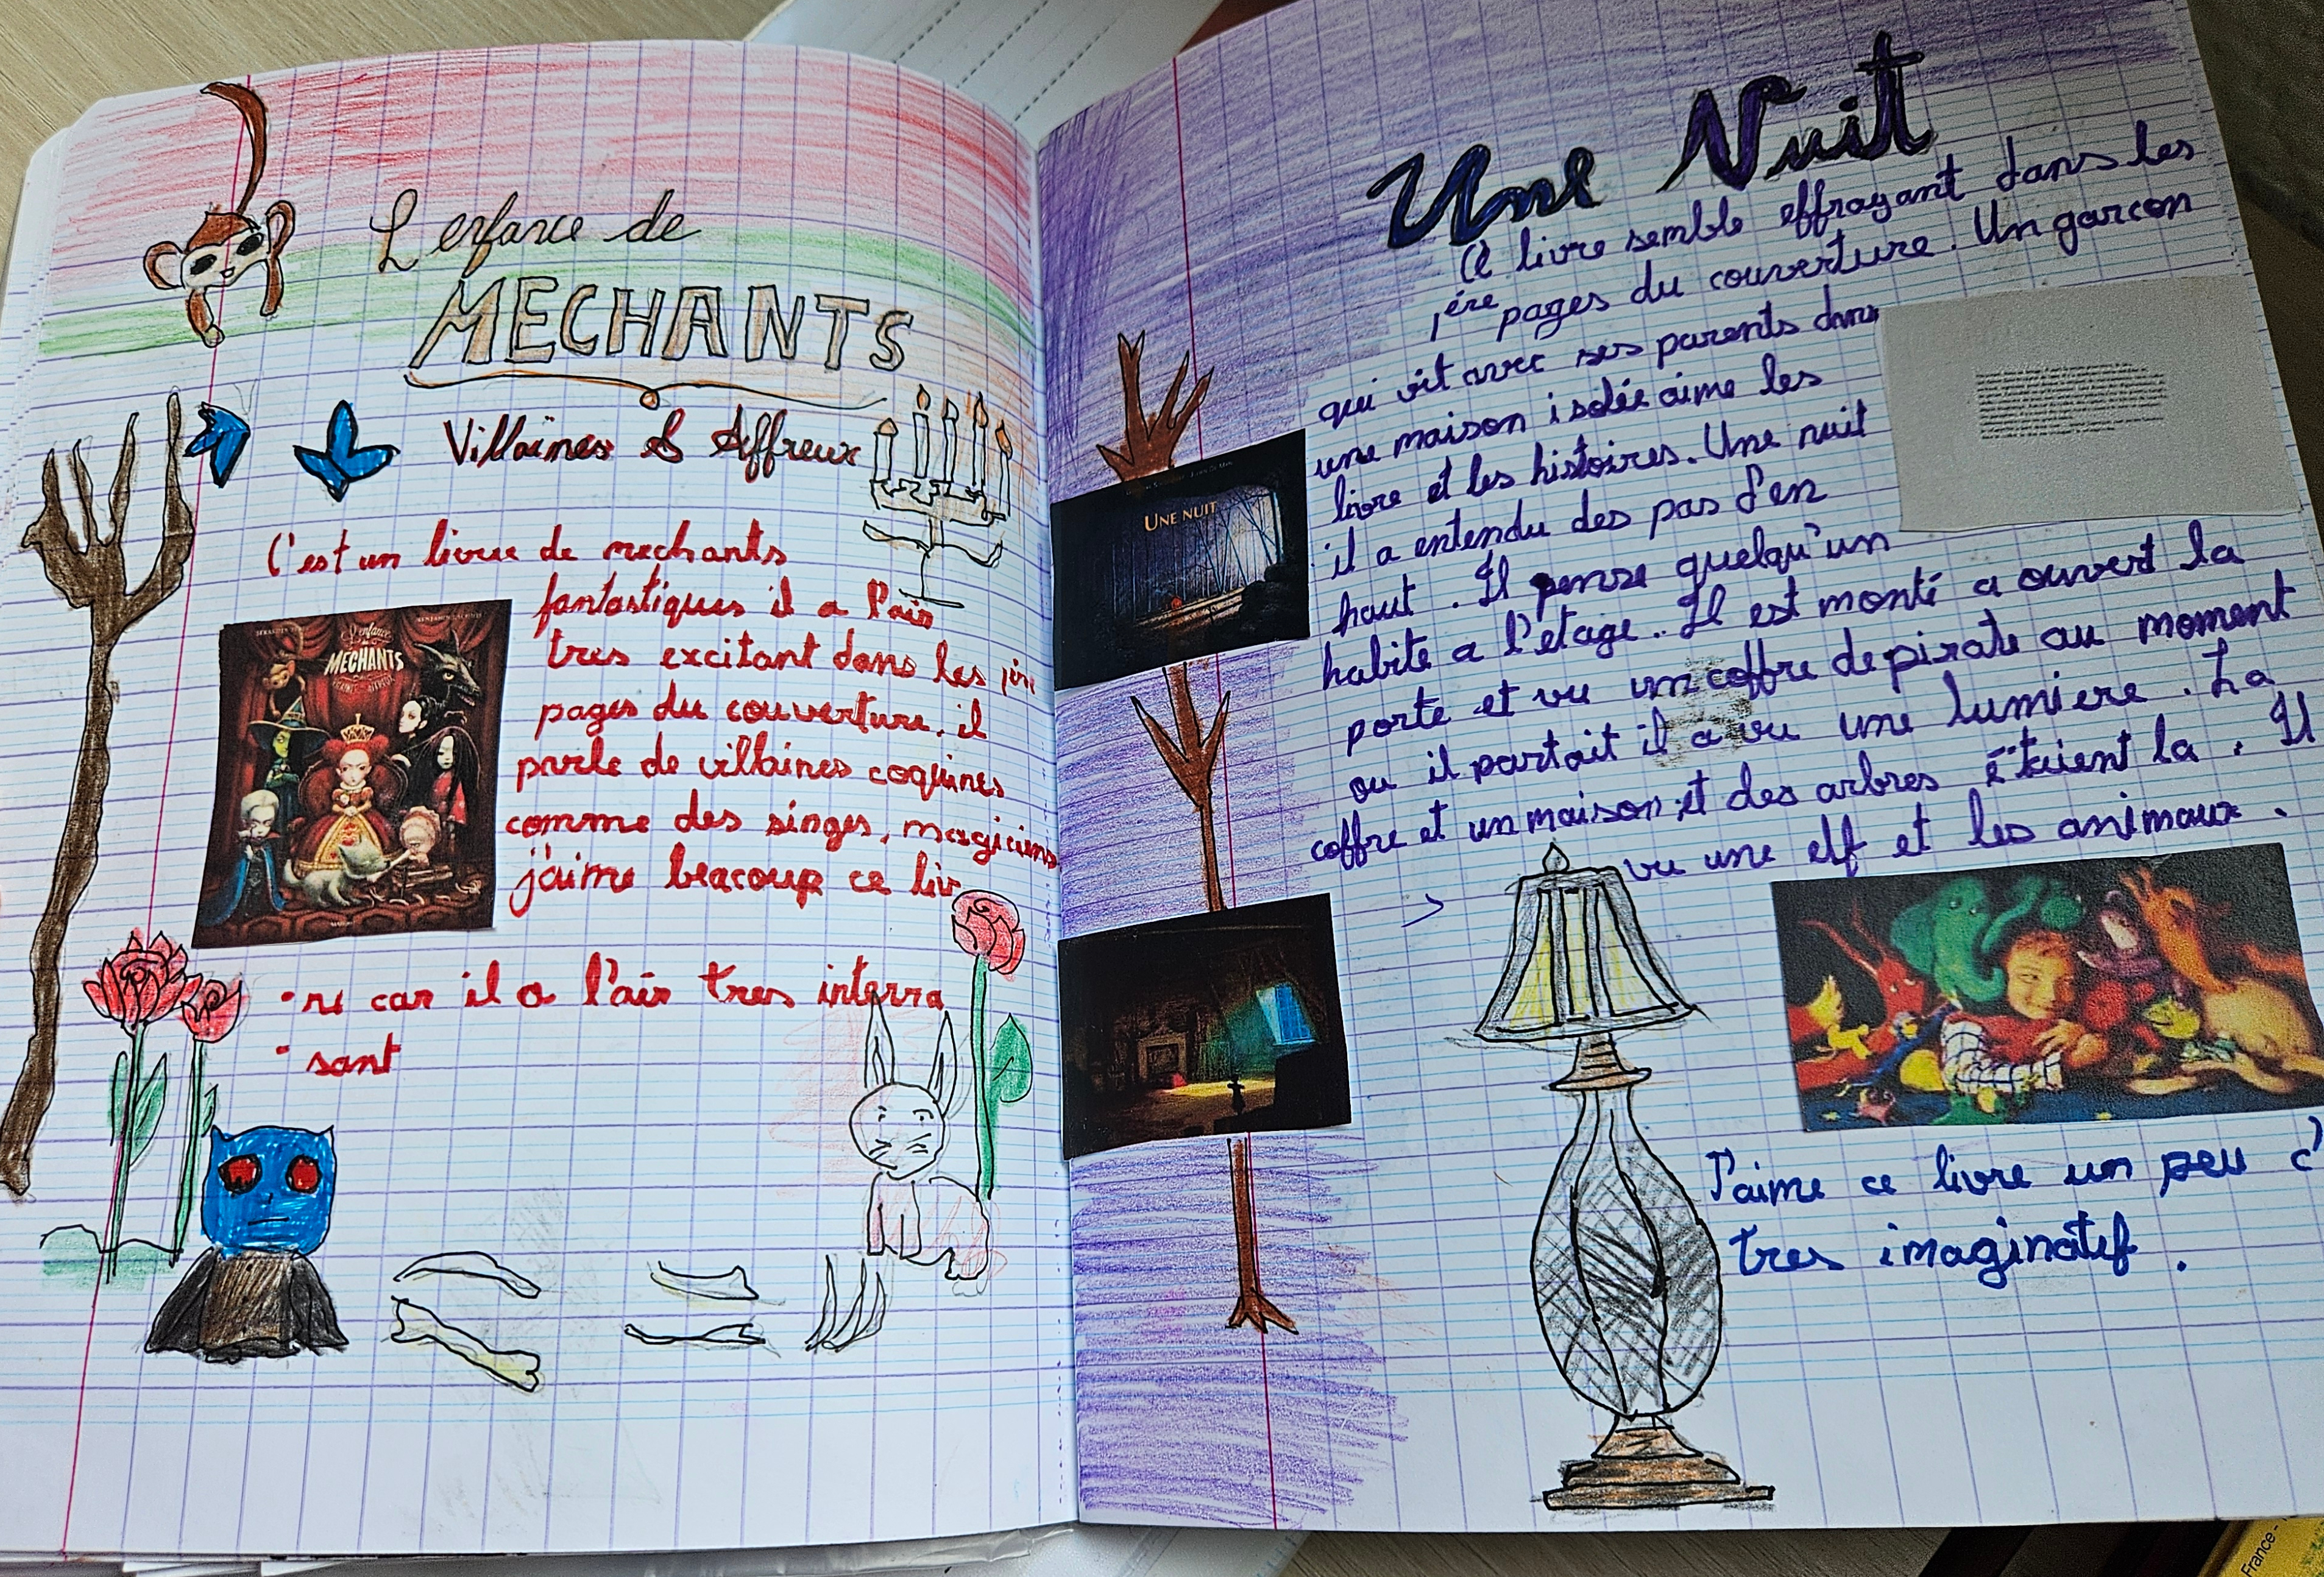 L'enfance de
MECHANTS
Villaines & Affreux
C'est un livre de mechants
fantastiques il a l'air
tres excitant dans les
pages du couverture. il
parle de villaines coquines
comme des singes, magiciens
j'aime beacoup ce liv
re car il a l'air tres interra
sant
L'enfance
MECHANTS
Une Nuit
Ce livre semble effrayant dans les
1ère pages du couverture. Un garcon
qui vit avec ses parents dans
une maison isolée aime les
livre et les histoires. Une nuit
il a entendu des pas d'en
haut. Il pense quelqu'un
habite a l'etage.. Il est monté a ouvert la
porte et vu un coffre de pirate au moment
ou il partait il a vu une lumiere. La
coffre et un maison et des arbres étaient la. Il
vu une elf et les animaux.
UNE NUIT
J'aime ce livre un peu c'
tres imaginatif.
France -